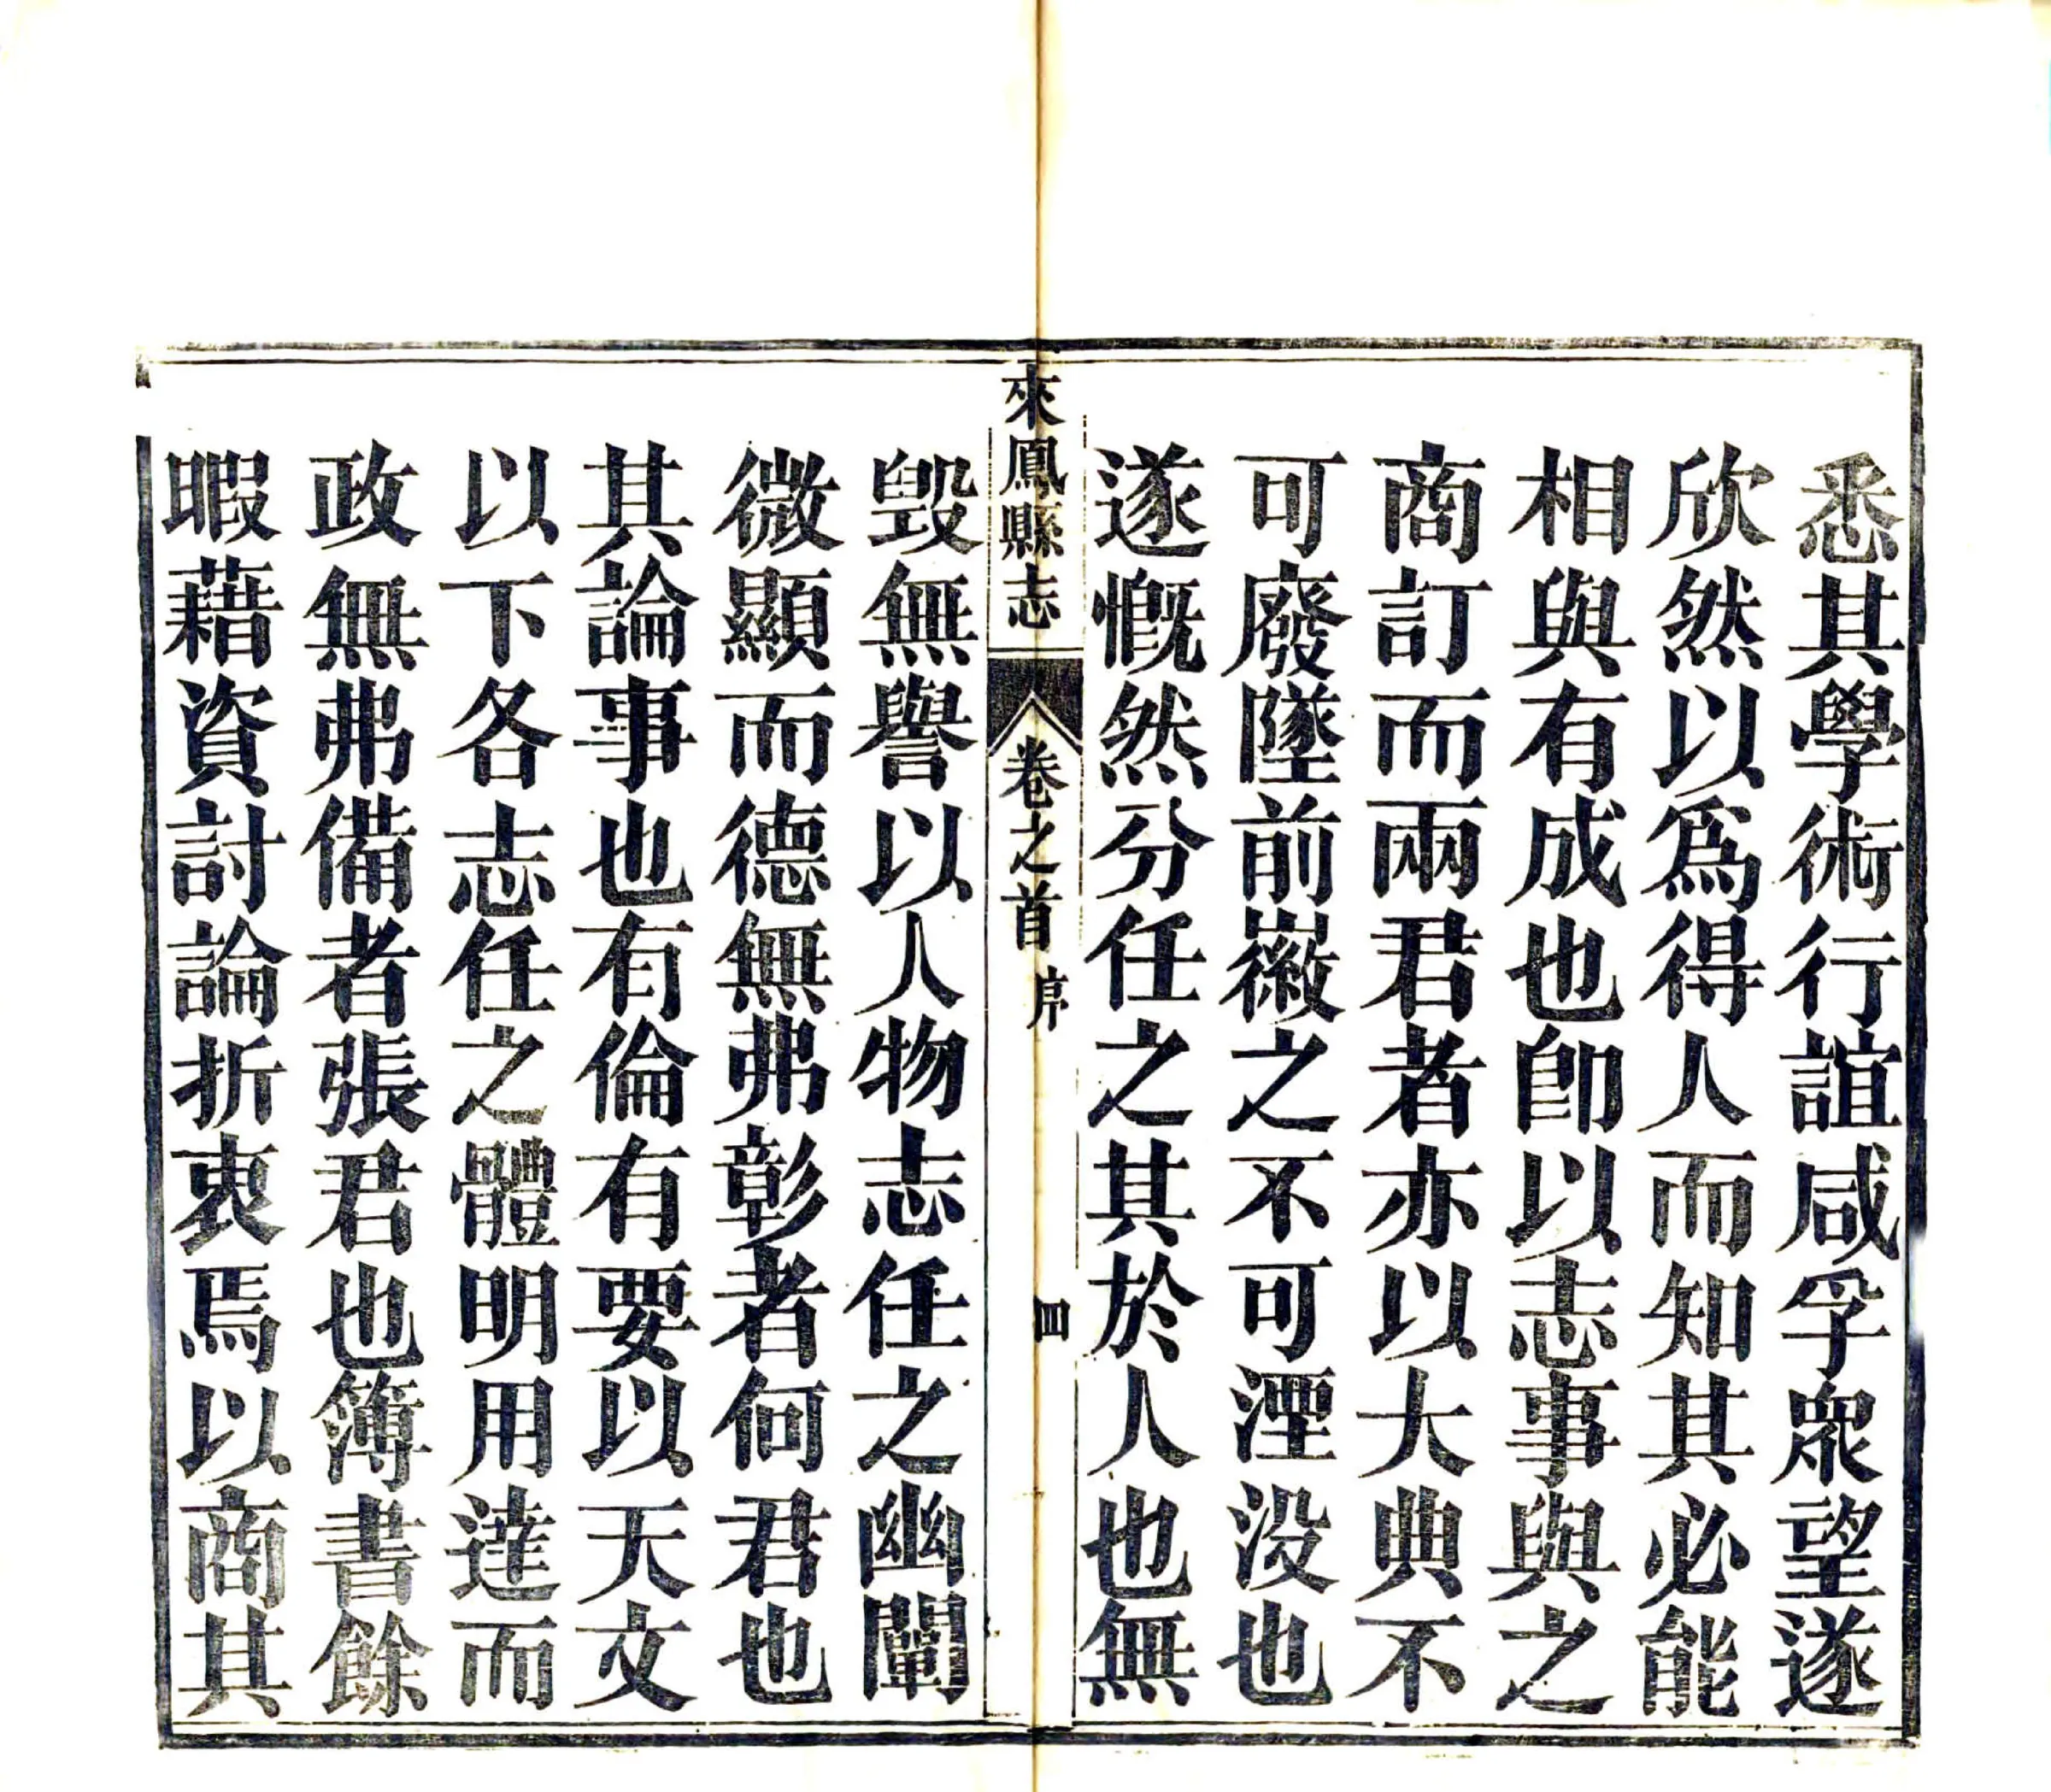 悉其學術行誼咸孚眾望遂
欣然以爲得人而知其必能
相與有成也卽以志事與之
商訂而兩君者亦以大典不
可廢墜前徽之不可湮没也
遂慨然分任之其於人也無
來鳳縣志 卷之首 序 四
毁無譽以人物志任之幽闡
微顯而德無弗彰者何君也
其論事也有倫有要以天文
以下各志任之體明用達而
政無弗備者張君也簿書餘
暇藉資討論折衷焉以商其